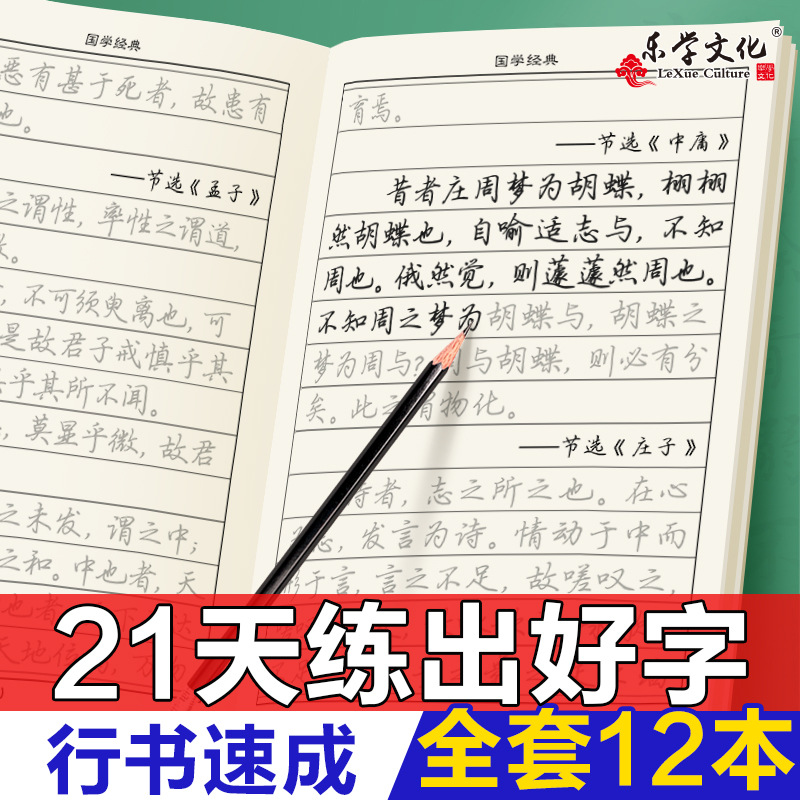 国学经典
恶有甚于死者，故患有
也。
——节选《孟子》
之谓性，率性之谓道，
不可须臾离也，可
是故君子戒慎乎其
乎其所不闻。
莫显乎微，故君
之未发，谓之中；
之和。中也者，天
国学经典
乐学文化®
LeXue Culture
育焉。
——节选《中庸》
昔者庄周梦为胡蝶，栩栩
然胡蝶也，自喻适志与，不知
周也。俄然觉，则蘧蘧然周也。
不知周之梦为胡蝶与，胡蝶之
梦为周与？周与胡蝶，则必有分
矣。此之谓物化。
——节选《庄子》
诗者，志之所之也。在心
心，发言为诗。情动于中而
形于言，言之不足，故嗟叹之，
21天练出好字
行书速成
全套12本